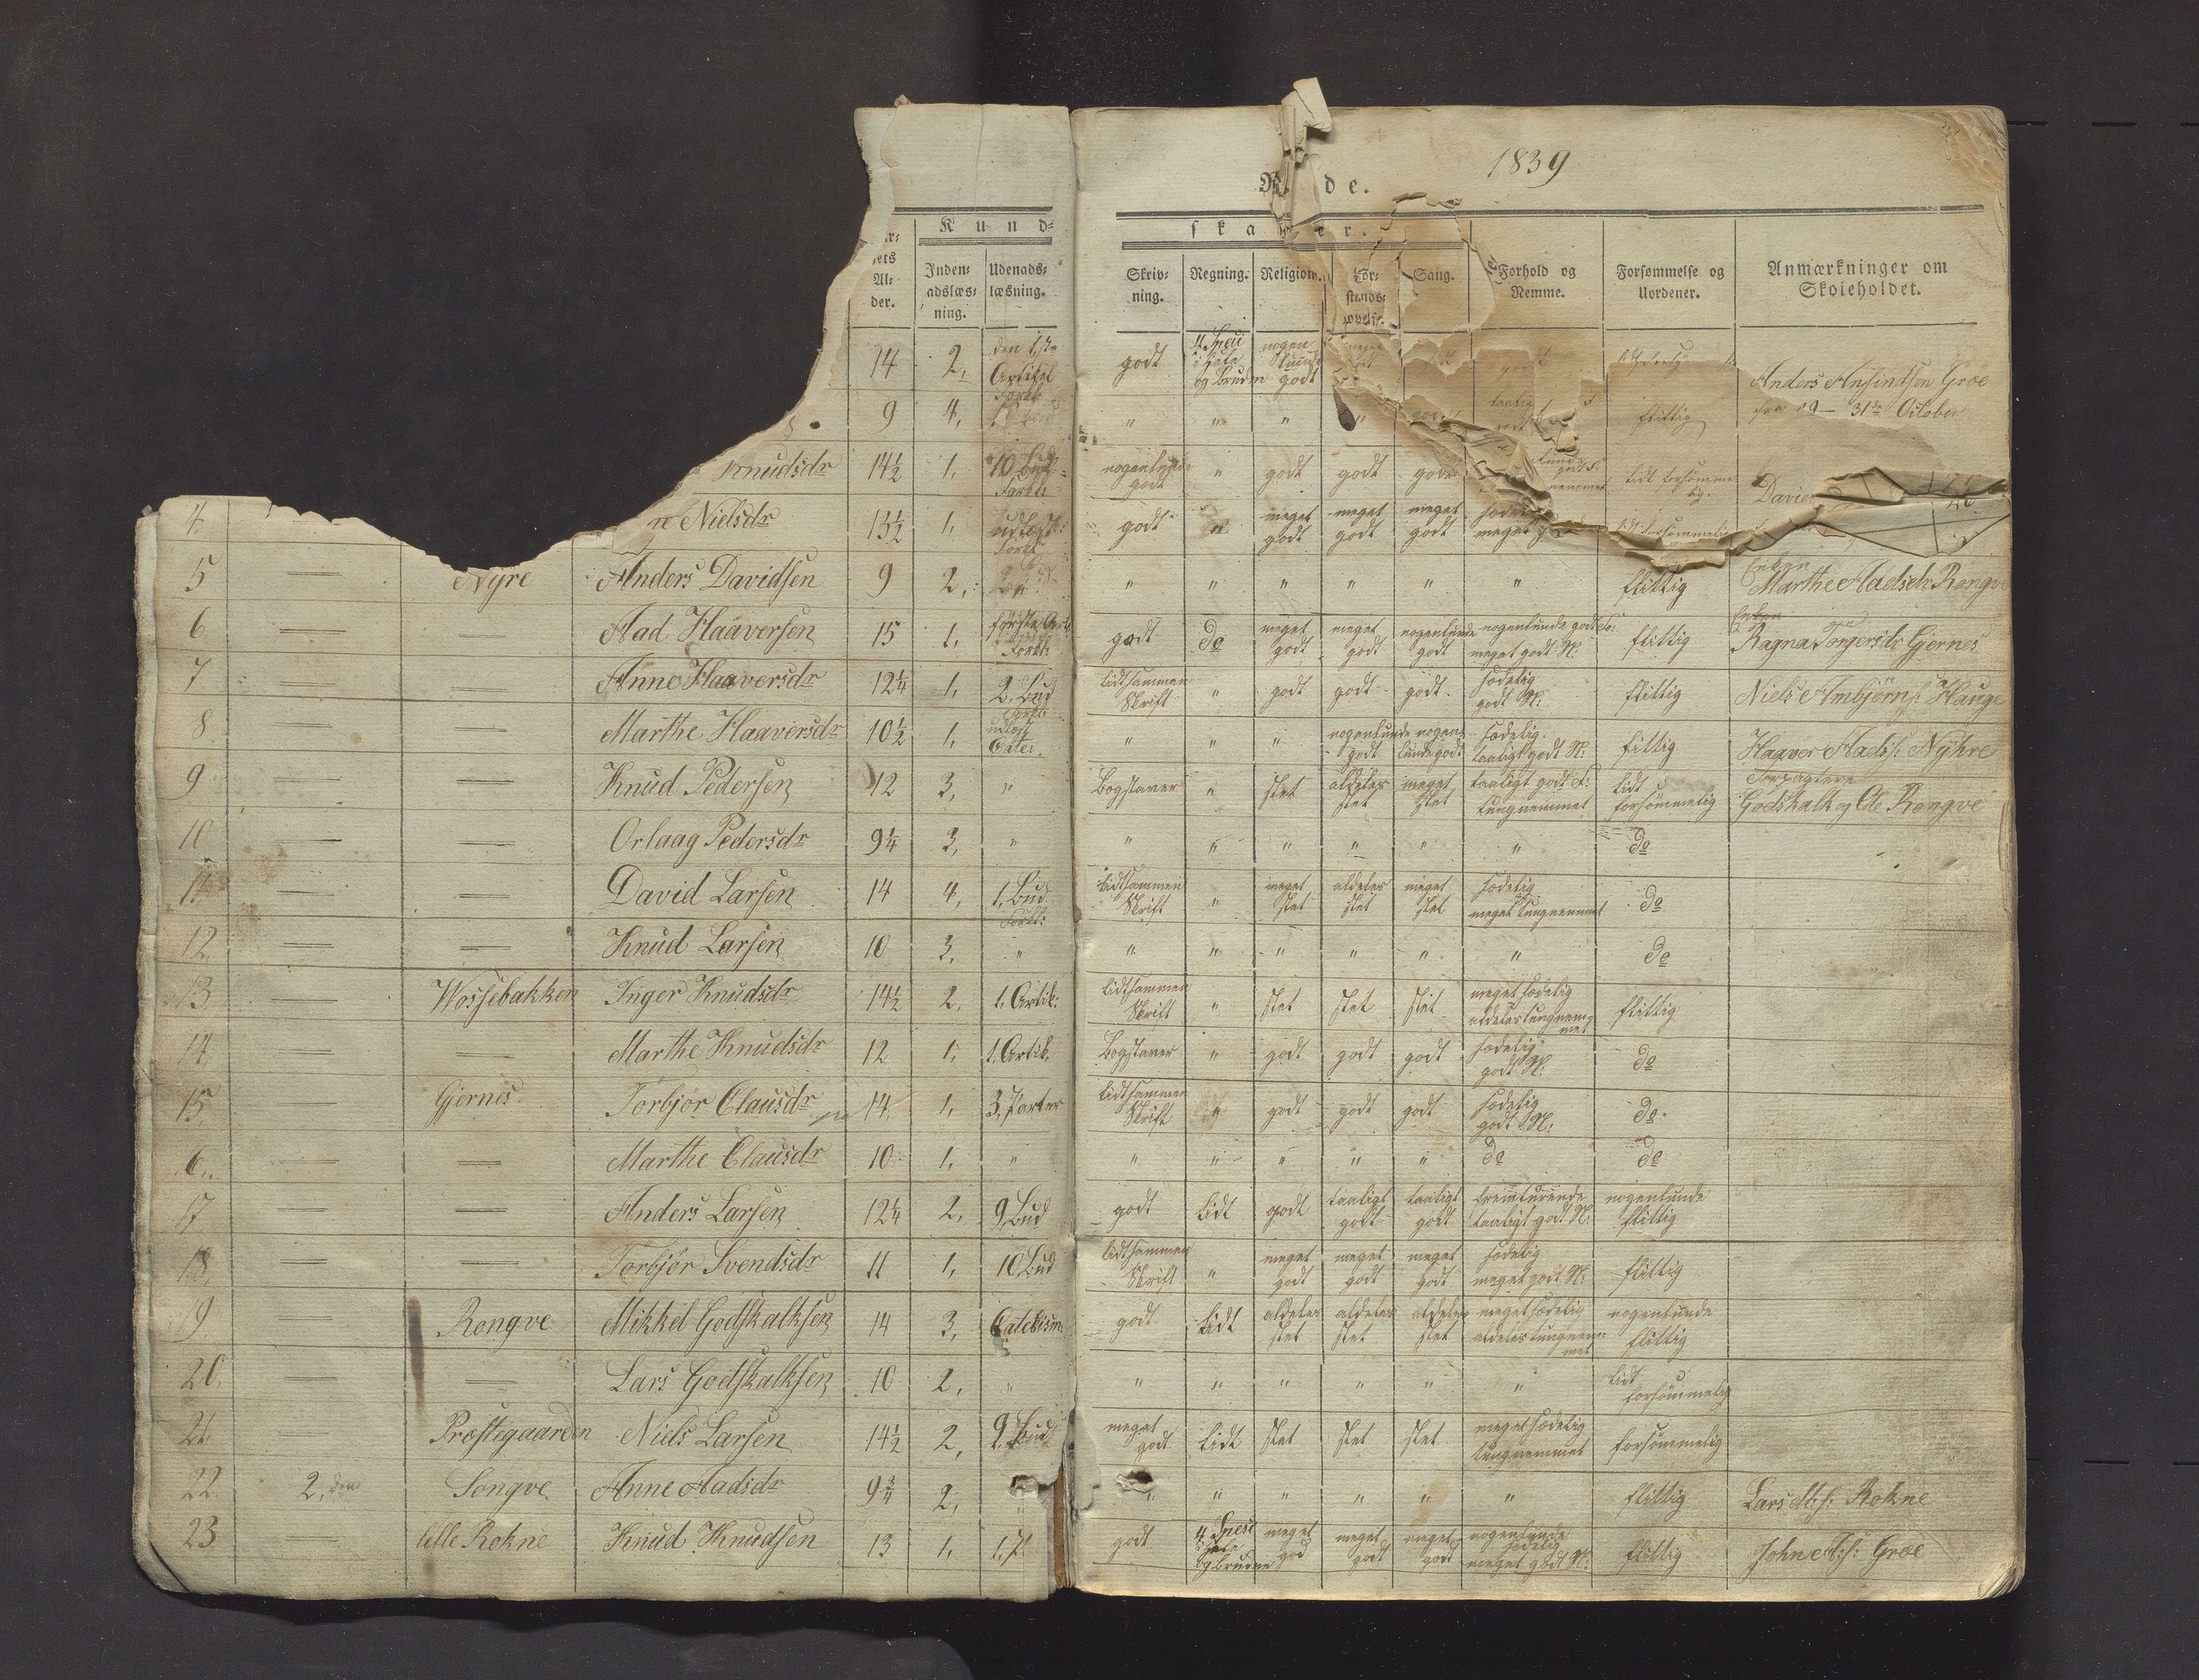 1839
de.
Kund=
Al=
der.
Inden=
adslæs=
ning.
Udenads=
læsning.
Skriv=
ning.
Regning.
Religion.
For=
stands=
øvelse.
Sang.
Forhold og
Nemme.
Forsømmelse og
Uordener.
Anmærkninger om
Skoleholdet.
14 2, den 1ste Artikel godt 4 Speci i hele og Brudne nogen godt Anders Anfindsen Groe
9 4, " " " " flittig 31te October
Knudsdr 14½ 1, 10 Bud Forkl: nogenlunde godt " godt godt godt lidt forsømmelig
4 Nielsdr 13½ 1, udlæst Forkl godt " meget godt meget godt meget godt sædelig meget lidt forsømmelig
5 — Nyre Anders Davidsen 9 2, " " " " " " flittig Enken Marthe Aadsdr Rongve
6 — — Aad Haaversen 15 1, første Art: Forkl: godt do meget godt meget godt nogenlunde godt nogenlunde godt F: meget godt N: flittig Enken Ragna Torgersdr Gjernes
7 — — Anne Haaversdr 12¼ 1, 2. Bud Forkl: lidt sammen Skrift " godt godt godt sædelig godt N: flittig Niels Arnbjørns: Hauge
8 — — Marthe Haaversdr 10½ 1, udlæst Cate: " " " nogenlunde godt nogenlunde godt sædelig taaligt godt N: flittig Haaver Aads: Nyhre
9 — — Knud Pedersen 12 3, " Bogstaver " slet aldeles slet meget slet taaligt godt F: tungnemmet lidt forsømmelig Forpagtere Godskalk og Ole Rongve
10 — — Orlaag Pedersdr 9¼ 3, " " " " " " " do
11 — — David Larsen 14 4, 1. Bud Forkl: lidt sammen Skrift " meget slet aldeles slet meget slet sædelig meget tungnemmet do
12 — — Knud Larsen 10 3, " " " " " " " do
13 — Wossebakken Inger Knudsdr 14½ 2, 1. Artik: lidt sammen Skrift " slet slet slet meget sædelig aldeles tungnemmet flittig
14 — — Marthe Knudsdr 12 1, 1. Artik. Bogstaver " godt godt godt sædelig godt N: do
15 — Gjernes Torbjør Clausdr 14 1, 3, Parter lidt sammen Skrift " godt godt godt sædelig godt N: do
6 — — Marthe Clausdr 10 1, " " " " " " do do
17 — — Anders Larsen 12¼ 2, 9 Bud godt lidt godt taaligt godt taaligt godt fremturende taaligt godt N: nogenlunde flittig
18 — — Torbjør Svendsdr 11 1, 10 Bud lidt sammen Skrift " meget godt meget godt meget godt sædelig meget godt N: flittig
19 — Rongve Mikkel Godskalksen 14 3, Catekism: godt lidt aldeles slet aldeles slet aldeles slet meget sædelig aldeles tungnemmet nogenlunde flittig
20 — — Lars Godskalksen 10 2, " " " " " " " lidt forsømmelig
21 — Præstegaarden Niels Larsen 14½ 2, 9 Bud meget godt lidt slet slet slet meget sædelig tungnemmet forsømmelig
22 2, den Songve Anne Aadsdr 9¾ 2, " " " " " " " flittig Lars M:s: Rokne
23 — lille Rokne Knud Knudsen 13 1, 1, P godt 4 Speci hele og Brudne meget god meget godt meget godt nogenlunde sædelig meget godt N: flittig John A:s: Groe